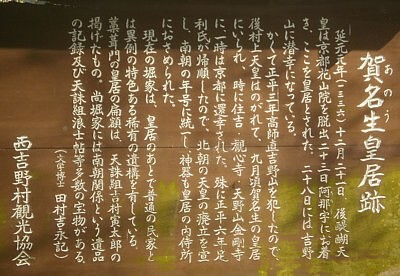 あのう
賀名生皇居跡
延元元年(一三三六)十二月二十一日、後醍醐天
皇は京都花山院を脱出二十三日阿那字にお着
き、ここを皇居とされた。二十八日には吉野
山に潜幸になっている。
かくて正平三年高師直吉野山を犯したので、
後村上天皇はのがれて、九月頃賀名生の皇居
にいられ、時に住吉・観心寺・天野山金剛寺
に一時は京都に還幸された。殊に正平六年足
利氏が帰順したので、北朝の天皇の廃立を宣
し、南朝の年号に統一し、神器も皇居の内侍所
におさめられた。
現在の堀家は、皇居のあとで普通の民家と
は異例の特色ある稀有の遺構を有している。
藁葺門の皇居の扁額は、天誅組吉村寅太郎の
掲げたもの。尚堀家には南朝関係という遺品
の記録及び天誅組浪士帖等多数の宝物がある。
(文学博士 田村吉永記)
西吉野村観光協会